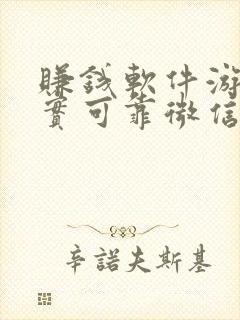 賺錢軟件游
實可靠微信
辛諾夫斯基